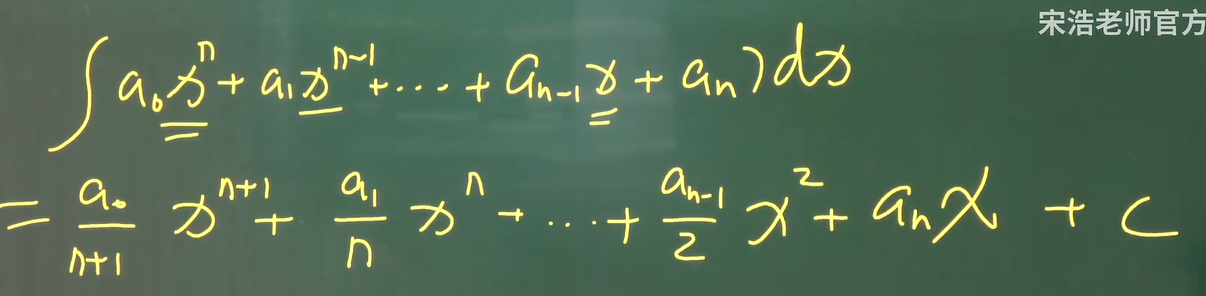 宋浩老师官方
∫ a₀xⁿ + a₁xⁿ⁻¹ + ⋯ + aₙ₋₁x + aₙ) dx
= a₀/(n+1) xⁿ⁺¹ + a₁/n xⁿ + ⋯ + aₙ₋₁/2 x² + aₙx + c